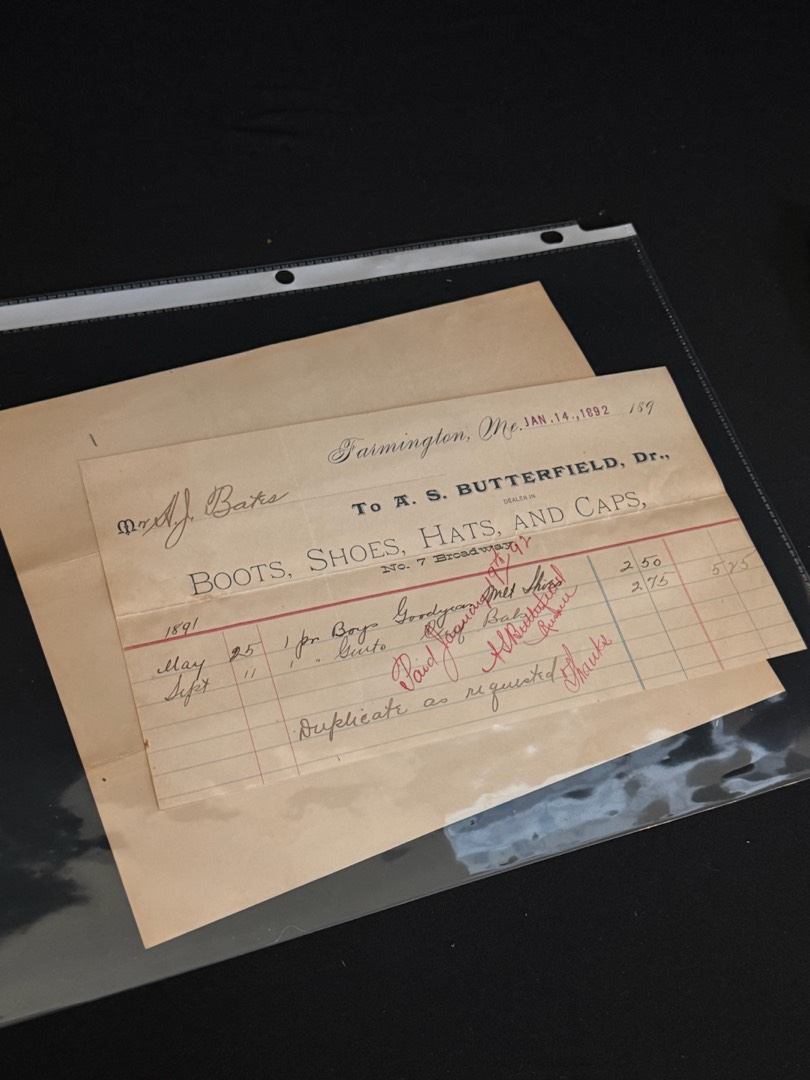 Farmington, Me. JAN. 14., 1892 189
Mr A. J. Bates
To A. S. BUTTERFIELD, Dr.,
DEALER IN
BOOTS, SHOES, HATS, AND CAPS,
No. 7 Broadway
1891
May 25 1 pr Boys Goodyear Welt Shoes 2 50
Sept 11 1 " Gents Bals 2 75 5 25
Paid January 19th 92
A S Butterfield
Thanks
Duplicate as requested